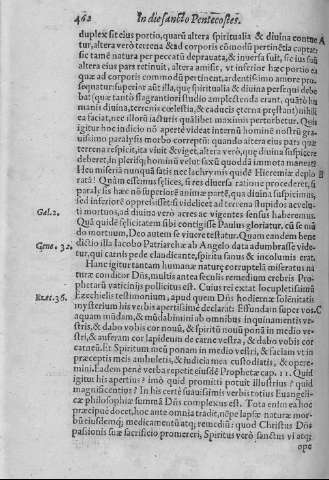 462 In die sancto Pentecostes.
duplex sit eius portio, quarū altera spiritualia & diuina contue A
tur, altera verò terrena & ad corporis cōmodū pertinētia captat:
sic tamē natura per peccatū deprauata, & inuersa fuit, sic ius suū
altera eius pars retinuit, altera amisit, vt inferior hæc portio ea
quæ ad corporis commodū pertinent, ardentissimo amore pro-
sequatur: superior aūt illa, quę spiritualia & diuina persequi debe
bat (quæ tantò flagrantiori studio amplectenda erant, quātò hu
manis diuina, terrenis cœlestia, & caducis ęterna pręstant) nihil
ea faciat, nec illorū iacturis quâlibet maximis perturbetur. Quis
igitur hoc indicio nō apertè videat internū hominē nostrū gra-
uissimo paralysis morbo correptū: quando altera eius pars quæ
terrena respicit, ita viuit & viget, altera verò, quæ diuina suspicere
deberet, in plerisq; hominū velut saxū quoddā immota maneat?
Heu miseria nunquā satis nec lachrymis quidē Hieremiæ deplo B
rata! Quàm essemus felices, si res diuersa ratione procederet, si
paralysis hæc nō superiorē animæ partē, quæ diuina suspicimus,
sed inferiorē oppressisset: si videlicet ad terrena stupidi ac veluti
Gal.2. mortuos, ad diuina verò acres ac vigentes sensus haberemus.
Quā quidē felicitatem sibi contigisse Paulus gloriatur, cū se mū
do mortuum, Deo autem se viuere testatur. Quam eandem bene
Gene. 32. dictio illa Iacobo Patriarchæ ab Angelo data adumbrasse vide-
tur, qui carnis pede claudicante, spiritu sanus & incolumis erat.
Hanc igitur tantam humanæ naturę corruptelā miseratus na
turæ conditor Dñs, multis antea seculis remedium crebris Pro-
phetarū vaticinijs pollicitus est. Cuius rei extat locupletissimū
Ezec.36. Ezechielis testimonium, apud quem Dñs hodiernæ solēnitatis
mysterium his verbis apertissimè declarat: Effundam super vos C
aquam mūdam, & mūdabimini ab omnibus inquinamentis ve-
stris, & dabo vobis cor nouū, & spiritū nouū ponā in medio ve-
stri, & auferam cor lapideum de carne vestra, & dabo vobis cor
carneū. Et Spiritum meū ponam in medio vestri, & faciam vt in
præceptis meis ambuletis, & iudicia mea custodiatis, & opere-
mini. Eadem penè verba repetit eiusdē Prophetæ cap. 11. Quid
igitur his apertius? imò quid promitti potuit illustrius? quid
magnificentius? In his certè suauissimis verbis totius Euangeli-
cæ philosophiæ summā Dñs complexus est. Tota enim ea hoc
præcipuè docet, hoc ante omnia tradit, nēpe lapsæ naturæ mor-
bū eiusdemq; medicamentū atq; remediū: quod Christus Dñs
passionis suæ sacrificio promereri, Spiritus verò sanctus vi atq;
ope